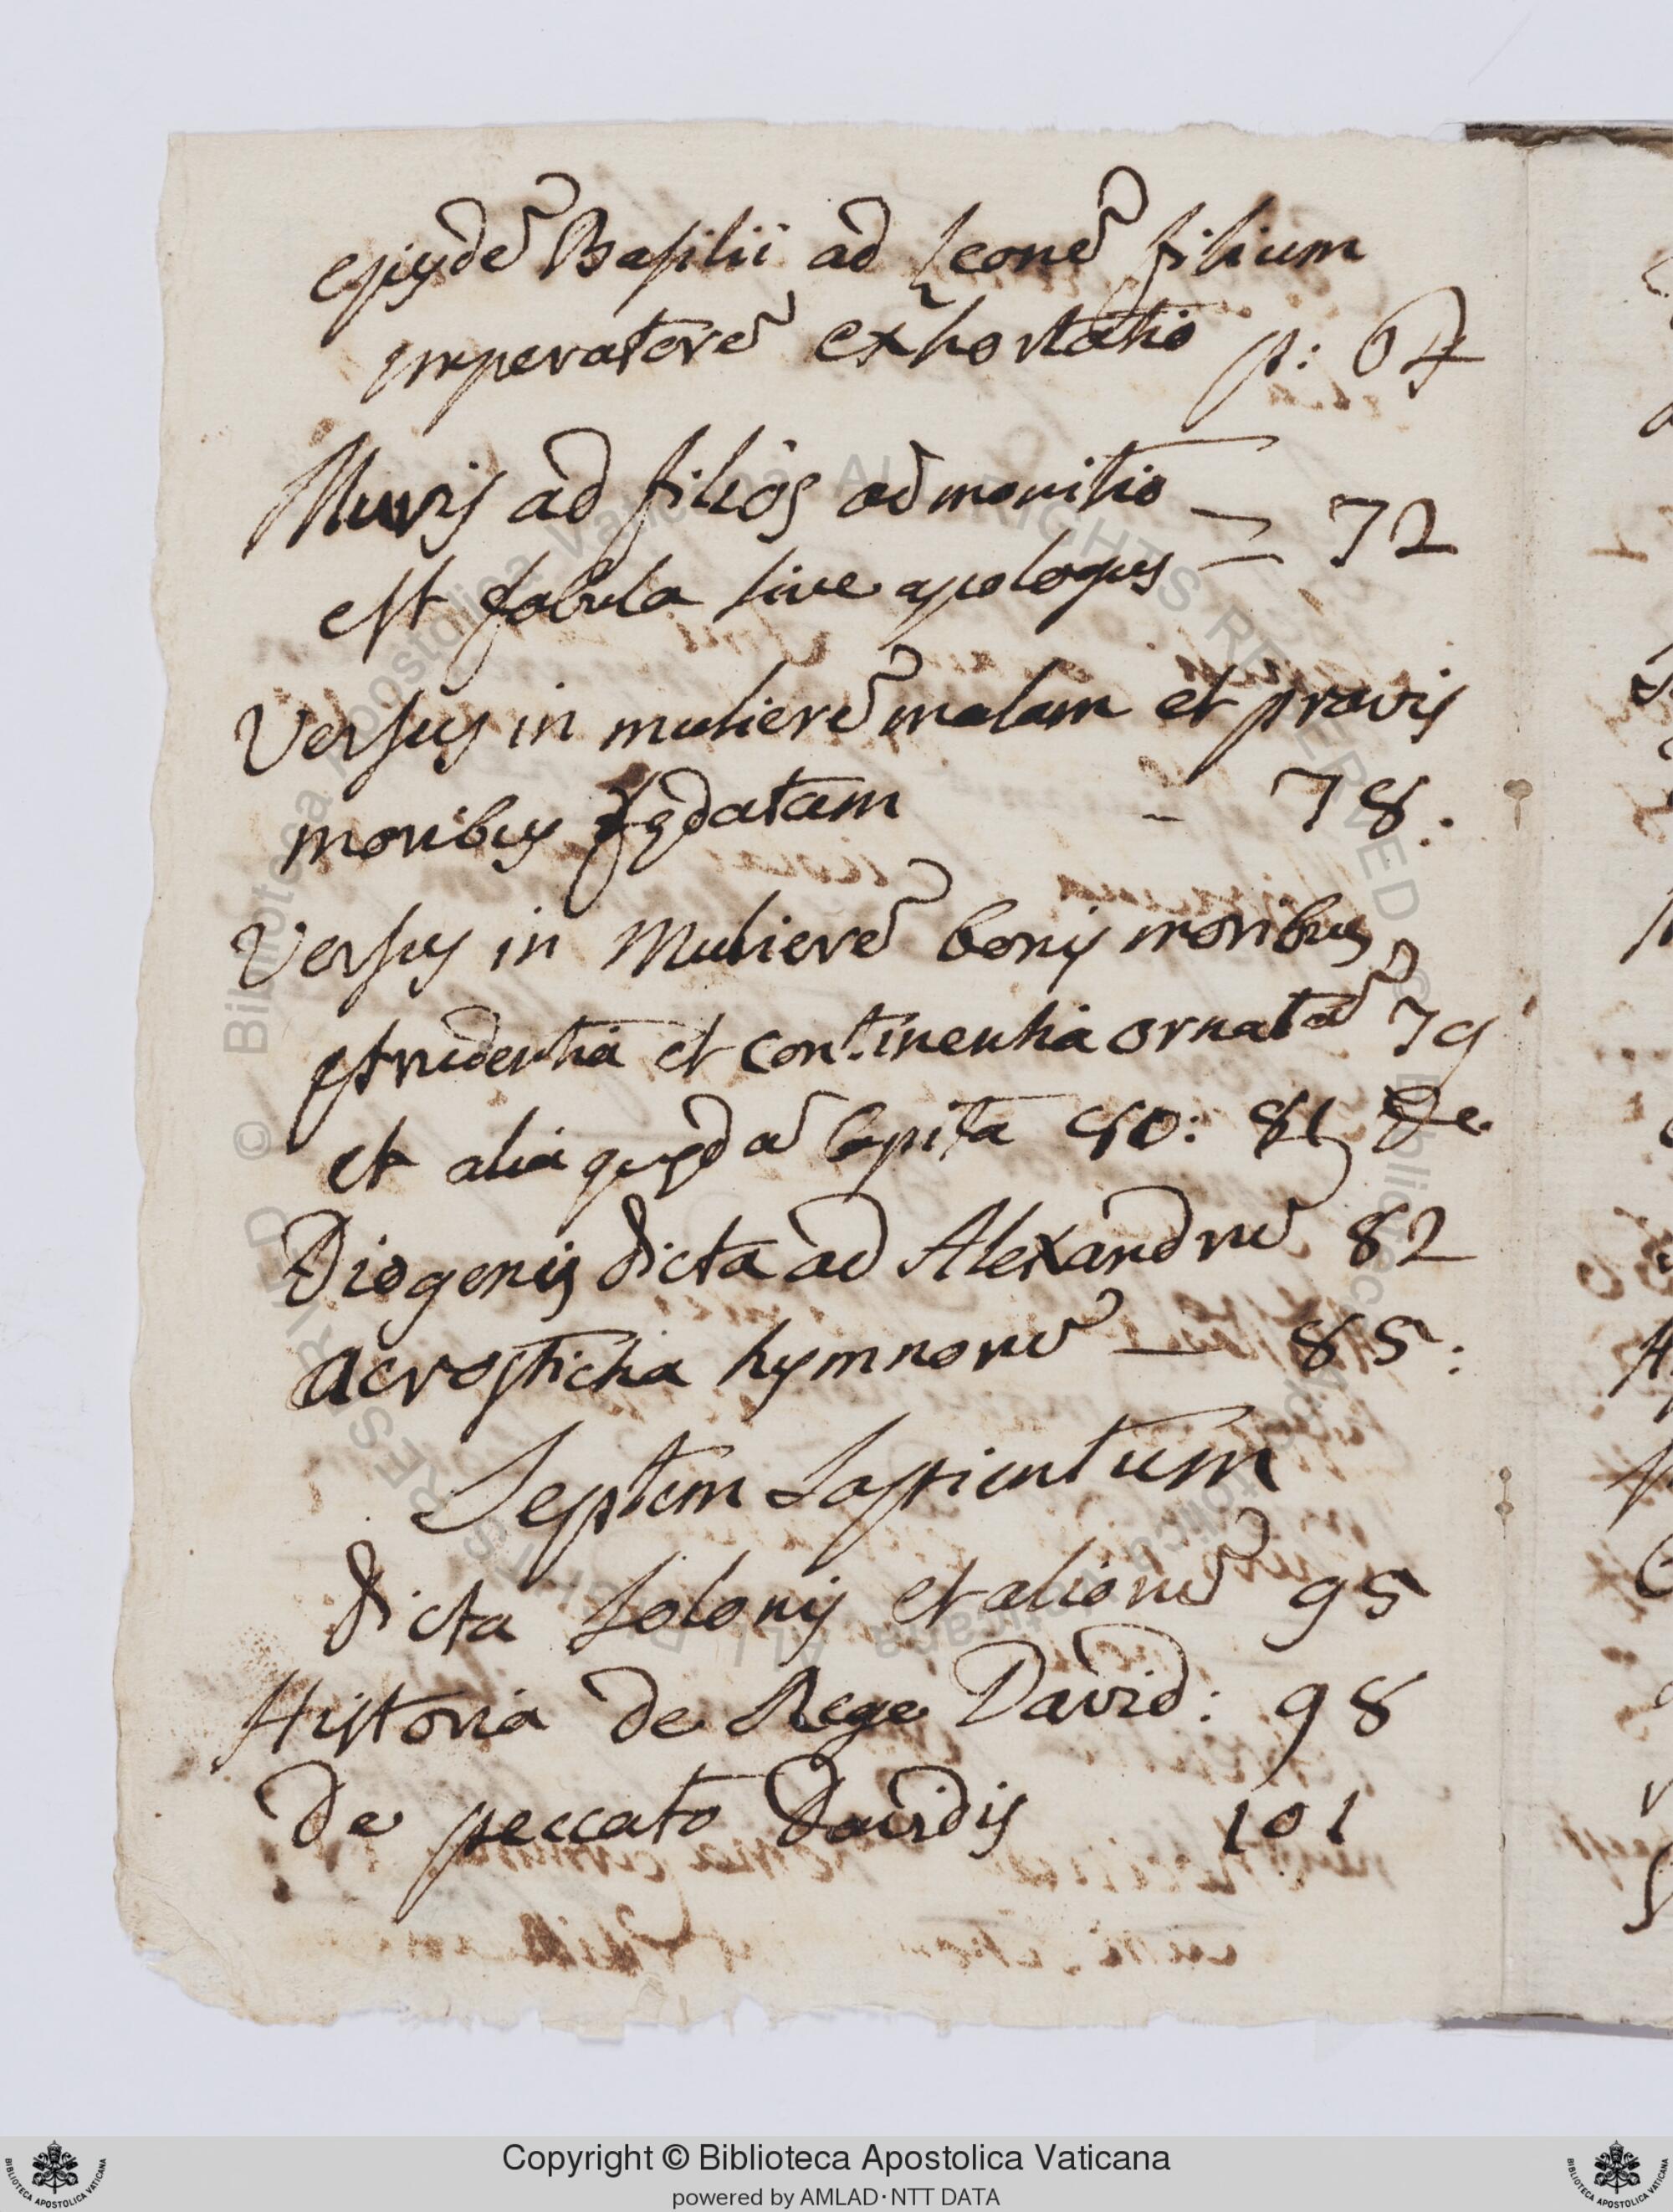 ejusdē Basilii ad Leonē filium
imperatorē exhortatio p: 67
Muris ad filios admonitio
est fabula sive apologus = 72
Versus in mulierē malam et pravis
moribus fędatam - 78.
Versus in Mulierē bonis moribus
prudentia et continentia ornatā 79
et alia quędā capita 80: 81
Diogenis dicta ad Alexandrū 82
acrosticha hymnorū — 85:
Septem Sapientum
dicta Solonis et aliorū 95
Historia de Rege David: 98
De peccato Davidis 101
© Biblioteca Apostolica Vaticana ALL RIGHTS RESERVED
Copyright © Biblioteca Apostolica Vaticana
powered by AMLAD·NTT DATA
BIBLIOTECA APOSTOLICA VATICANA
BIBLIOTECA APOSTOLICA VATICANA